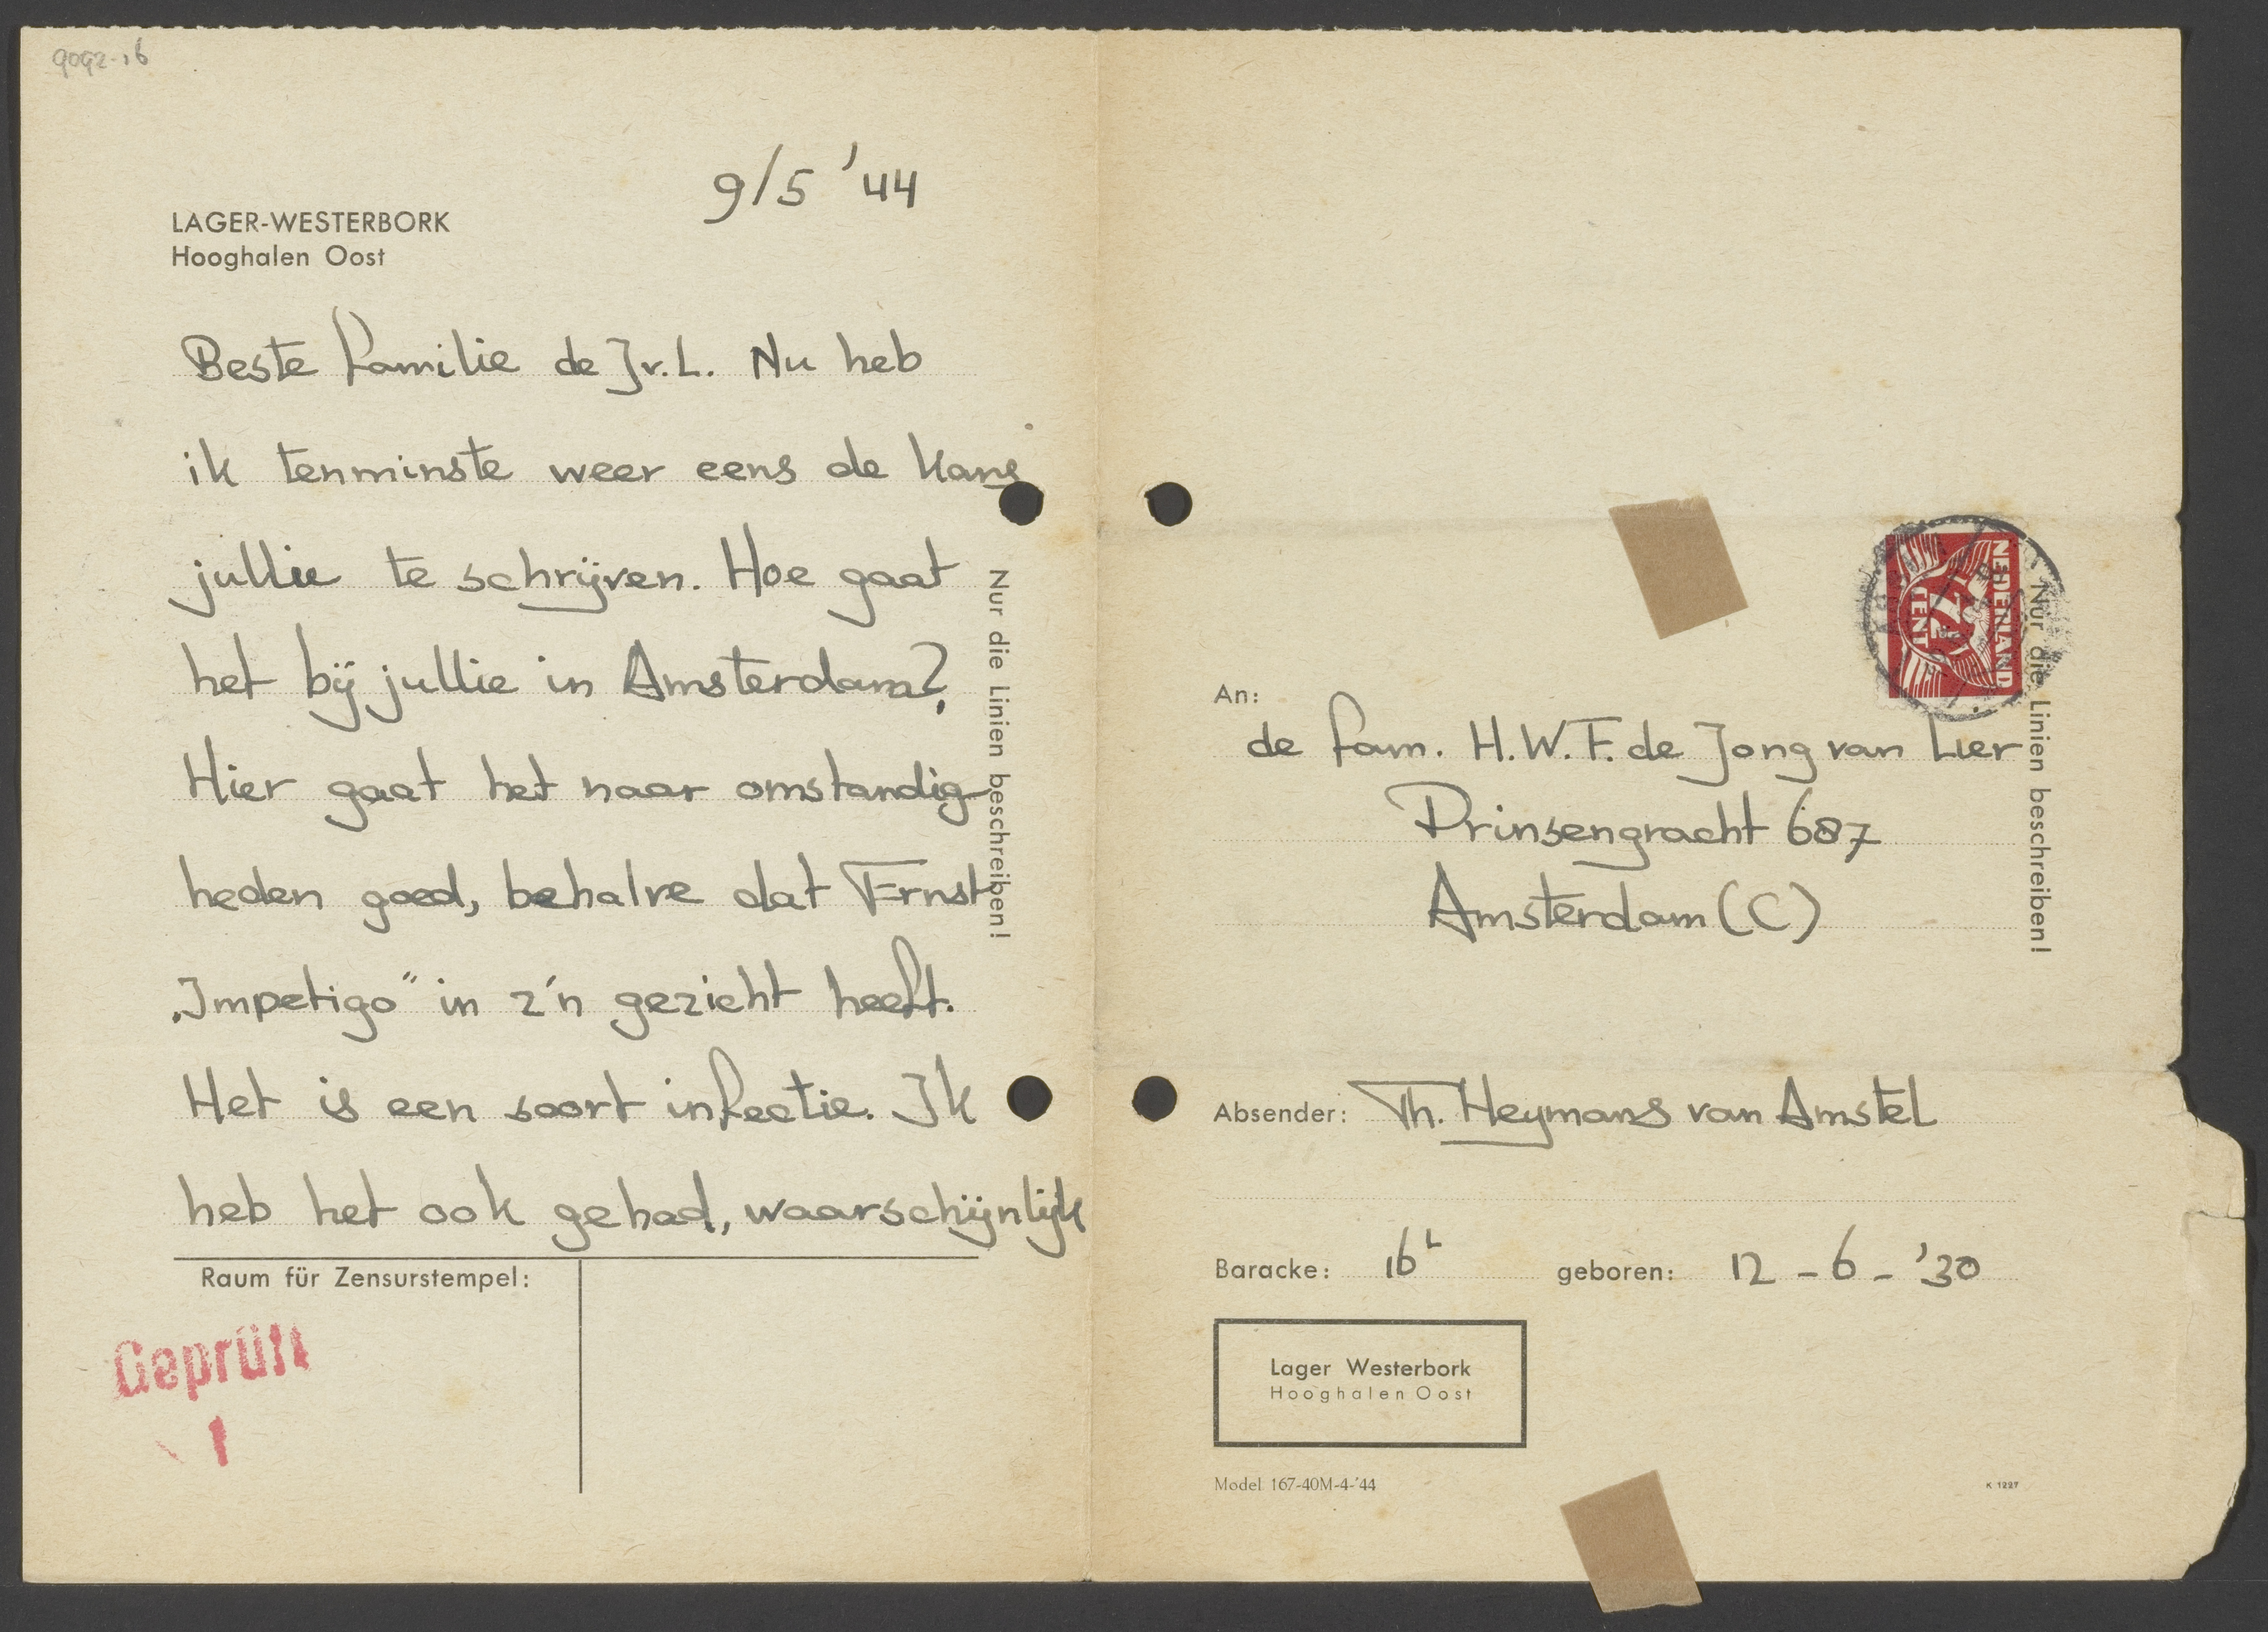 9092-16
9/5 '44
LAGER-WESTERBORK
Hooghalen Oost
Beste familie de J.v.L. Nu heb
ik tenminste weer eens de kans
jullie te schrijven. Hoe gaat
het bij jullie in Amsterdam?
Hier gaat het naar omstandig
heden goed, behalve dat Ernst
„Impetigo" in z'n gezicht heeft.
Het is een soort infectie. Ik
heb het ook gehad, waarschijnlijk
Nur die Linien beschreiben!
Raum für Zensurstempel:
Geprüft
1
NEDERLAND
7½
CENT
Nur die Linien beschreiben!
An:
de fam. H.W.F. de Jong van Lier
Prinsengracht 687
Amsterdam (C)
Absender: Th. Heymans van Amstel
Baracke: 16L geboren: 12-6-'30
Lager Westerbork
Hooghalen Oost
Model 167-40M-4-'44
K 1227